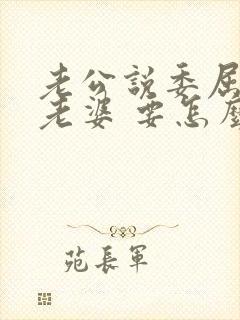 老公說委屈
老婆 要怎麼
苑長軍